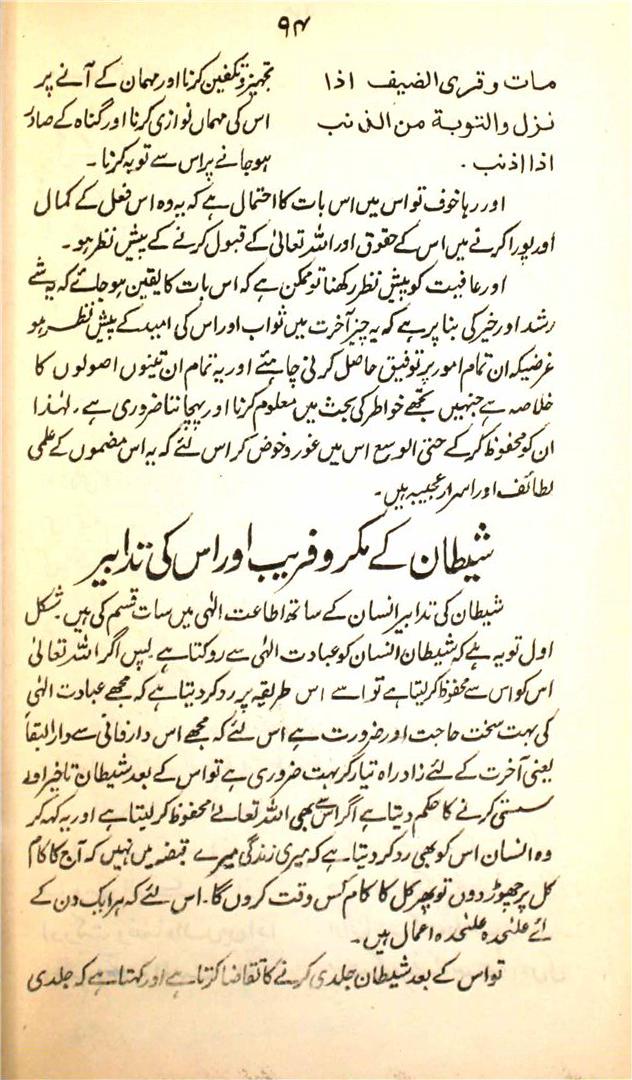 ۹۴
مات و قری الضیف اذا
نزل والتوبة من الذنب
اذا اذنب .
تجہیز و تکفین کرنا اور مہمان کے آنے پر
اس کی مہماں نوازی کرنا اور گناہ کے صادر
ہو جانے پر اس سے توبہ کرنا ۔
اور رہا خوف تو اس میں اس بات کا احتمال ہے کہ یہ وہ اس فعل کے کمال
اور پورا کرنے میں اس کے حقوق اور اللہ تعالیٰ کے قبول کرنے کے پیش نظر ہو ۔
اور عاقبت کو پیش نظر رکھنا تو ممکن ہے کہ اس بات کا یقین ہو جائے کہ یہ شے
رشد اور خیر کی بنا پر ہے کہ یہ چیز آخرت میں ثواب اور اس کی امید کے پیش نظر ہو
غرضیکہ ان تمام امور پر توفیق حاصل کرنی چاہئے اور یہ تمام ان تینوں اصولوں کا
خلاصہ ہے جنہیں تجھے خواطر کی بحث میں معلوم کرنا اور پہچاننا ضروری ہے ۔ لہٰذا
ان کو محفوظ کر کے حتی الوسع اس میں غور و خوض کر اس لئے کہ یہ اس مضموں کے علمی
لطائف اور اسرار عجیبہ ہیں ۔
شیطان کے مکر و فریب اور اس کی تدابیر
شیطان کی تدابیر انسان کے ساتھ اطاعت الٰہی میں سات قسم کی ہیں ۔ شکل
اول تو یہ ہے کہ شیطان انسان کو عبادت الٰہی سے روکتا ہے ۔ پس اگر اللہ تعالیٰ
اس کو اس سے محفوظ کر لیتا ہے تو اسے اس طریقہ پر رد کر دیتا ہے کہ مجھے عبادت الٰہی
کی بہت سخت حاجت اور ضرورت ہے اس لئے کہ مجھے اس دار فانی سے دار البقأ
یعنی آخرت کے لئے زاد راہ تیار کر بہت ضروری ہے تو اس کے بعد شیطان تاخیر اور
سستی کرنے کا حکم دیتا ہے اگر اس سے بھی اللہ تعالےٰ محفوظ کر لیتا ہے اور یہ کہہ کر
وہ انسان اس کو بھی رد کر دیتا ہے کہ میری زندگی میرے قبضہ میں نہیں کہ آج کا کام
کل پر چھوڑ دوں تو پھر کل کا کام کس وقت کروں گا ۔ اس لئے کہ ہر ایک دن کے
لئے علیٰحدہ علیٰحدہ اعمال ہیں ۔
تو اس کے بعد شیطان جلدی کرنے کا تقاضا کرتا ہے اور کہتا ہے کہ جلدی